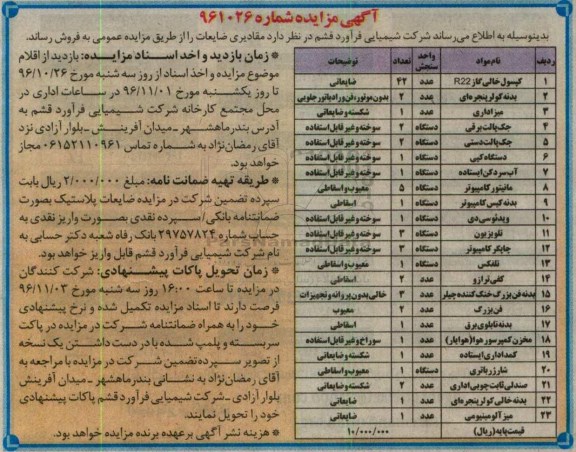 آگهی مزایده شماره ۹۶۱۰۲۶
بدینوسیله به اطلاع می‌رساند شرکت شیمیایی فرآورد قشم در نظر دارد مقادیری ضایعات را از طریق مزایده عمومی به فروش رساند.
* زمان بازدید و اخذ اسناد مزایده: بازدید از اقلام
موضوع مزایده و اخذ اسناد از روز سه شنبه مورخ ۹۶/۱۰/۲۶
تا روز یکشنبه مورخ ۹۶/۱۱/۰۱ در ساعات اداری در
محل مجتمع کارخانه شرکت شیمیایی فرآورد قشم به
آدرس بندرماهشهر ـ میدان آفرینش ـ بلوار آزادی نزد
آقای رمضان‌نژاد به شماره تماس ۰۶۱۵۲۱۱۰۹۶۱ مجاز
خواهد بود.
* طریقه تهیه ضمانت نامه: مبلغ ۲/۰۰۰/۰۰۰ ریال بابت
سپرده تضمین شرکت در مزایده ضایعات پلاستیک بصورت
ضمانتنامه بانکی/سپرده نقدی بصورت واریز نقدی به
حساب شماره ۲۹۷۵۷۸۲۴ بانک رفاه شعبه دکتر حسابی به
نام شرکت شیمیایی فرآورد قشم قابل واریز خواهد بود.
* زمان تحویل پاکات پیشنهادی: شرکت کنندگان
در مزایده تا ساعت ۱۶:۰۰ روز سه شنبه مورخ ۹۶/۱۱/۰۳
فرصت دارند تا اسناد مزایده تکمیل شده و نرخ پیشنهادی
خود را به همراه ضمانتنامه شرکت در مزایده در پاکت
سربسته و پلمپ شده با در دست داشتن یک نسخه
از تصویر سپرده تضمین شرکت در مزایده با مراجعه به
آقای رمضان‌نژاد به نشانی بندرماهشهر ـ میدان آفرینش
بلوار آزادی ـ شرکت شیمیایی فرآورد قشم پاکات پیشنهادی
خود را تحویل نمایند.
* هزینه نشر آگهی بر عهده برنده مزایده خواهد بود.
ردیف نام مواد واحد سنجش تعداد توضیحات
۱ کپسول خالی گاز R22 عدد ۴۲ ضایعاتی
۲ بدنه کولر پنجره‌ای عدد ۲ بدون موتور، فن و رادیاتور جلویی
۳ میز اداری عدد ۱ شکسته و ضایعاتی
۴ جک پالت برقی دستگاه ۲ سوخته و غیر قابل استفاده
۵ جک پالت دستی دستگاه ۲ سوخته و غیر قابل استفاده
۶ دستگاه کپی دستگاه ۱ سوخته و غیر قابل استفاده
۷ آب سردکن ایستاده دستگاه ۱ سوخته و غیر قابل استفاده
۸ مانیتور کامپیوتر دستگاه ۵ معیوب و اسقاطی
۹ بدنه کیس کامپیوتر دستگاه ۱ اسقاطی
۱۰ ویدئو سی دی دستگاه ۱ سوخته و غیر قابل استفاده
۱۱ تلویزیون دستگاه ۳ سوخته و غیر قابل استفاده
۱۲ چاپگر کامپیوتر دستگاه ۳ سوخته و غیر قابل استفاده
۱۳ تلفکس دستگاه ۱ معیوب و اسقاطی
۱۴ کفی ترازو عدد ۲ اسقاطی
۱۵ بدنه فن بزرگ خنک کننده چیلر عدد ۳ خالی بدون پروانه و تجهیزات
۱۶ فن بزرگ عدد ۲ معیوب
۱۷ بدنه تابلوی برق عدد ۱ اسقاطی
۱۸ مخزن کمپرسور هوا (هوایار) عدد ۱ سوراخ و غیر قابل استفاده
۱۹ کمد اداری ایستاده عدد ۱ شکسته و ضایعاتی
۲۰ شارژر باتری دستگاه ۱ معیوب و اسقاطی
۲۱ صندلی ثابت چوبی اداری عدد ۲ شکسته و ضایعاتی
۲۲ بدنه خالی کولر پنجره‌ای عدد ۱ ضایعاتی
۲۳ میز آلومینیومی عدد ۱ ضایعاتی
قیمت پایه (ریال) ۱۰/۰۰۰/۰۰۰